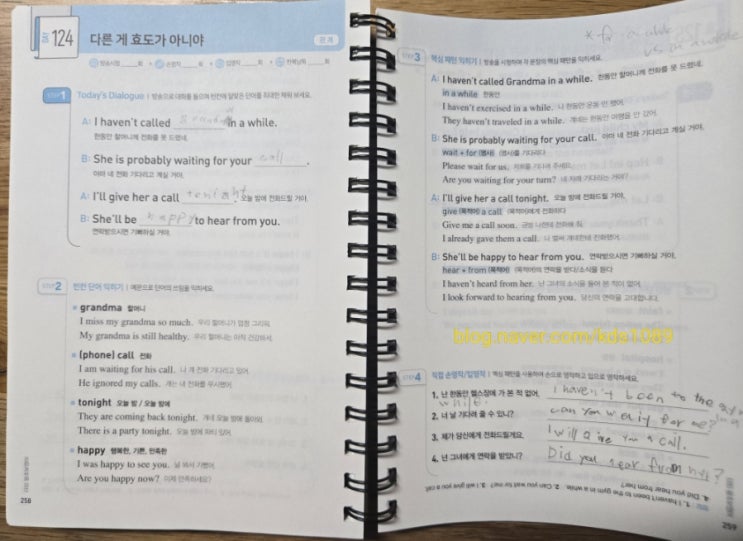 DAY 124 다른 게 효도가 아니야
관계
방송시청 ___회 손영작 ___회 입영작 ___회 반복낭독 ___회
STEP 1 Today's Dialogue | 방송으로 대화를 들으며 빈칸에 알맞은 단어를 최대한 채워 보세요.
A: I haven't called grandma in a while.
한동안 할머니께 전화를 못 드렸네.
B: She is probably waiting for your call.
아마 네 전화 기다리고 계실 거야.
A: I'll give her a call tonight. 오늘 밤에 전화드릴 거야.
B: She'll be happy to hear from you.
연락받으시면 기뻐하실 거야.
STEP 2 빈칸 단어 익히기 | 예문으로 단어의 쓰임을 익히세요.
grandma 할머니
I miss my grandma so much. 우리 할머니가 엄청 그리워.
My grandma is still healthy. 우리 할머니는 아직 건강하셔.
(phone) call 전화
I am waiting for his call. 나 걔 전화 기다리고 있어.
He ignored my calls. 걔는 내 전화를 무시했어.
tonight 오늘 밤 / 오늘 밤에
They are coming back tonight. 걔네 오늘 밤에 돌아와.
There is a party tonight. 오늘 밤에 파티 있어.
happy 행복한, 기쁜, 만족한
I was happy to see you. 널 봐서 기뻤어.
Are you happy now? 이제 만족하세요?
258
STEP 3 핵심 패턴 익히기 | 방송을 시청하며 각 문장의 핵심 패턴을 익히세요.
A: I haven't called Grandma in a while. 한동안 할머니께 전화를 못 드렸네.
in a while 한동안
I haven't exercised in a while. 나 한동안 운동 안 했어.
They haven't traveled in a while. 걔네는 한동안 여행을 안 갔어.
B: She is probably waiting for your call. 아마 네 전화 기다리고 계실 거야.
wait + for (명사) (명사)를 기다리다
Please wait for us. 저희를 기다려 주세요.
Are you waiting for your turn? 네 차례 기다리는 거야?
A: I'll give her a call tonight. 오늘 밤에 전화드릴 거야.
give (목적어) a call (목적어)에게 전화하다
Give me a call soon. 곧 나한테 전화해 줘.
I already gave them a call. 나 벌써 걔네한테 전화했어.
B: She'll be happy to hear from you. 연락받으시면 기뻐하실 거야.
hear + from (목적어) (목적어)의 연락을 받다/소식을 듣다
I haven't heard from her. 난 그녀의 소식을 들어 본 적이 없어.
I look forward to hearing from you. 당신의 연락을 고대합니다.
blog.naver.com/kds1089
STEP 4 직접 손영작/입영작 | 핵심 패턴을 사용하여 손으로 영작하고 입으로 영작하세요.
1. 난 한동안 헬스장에 가 본 적 없어. I haven't been to the gym in a while.
2. 너 날 기다려 줄 수 있니? can you waiy for me?
3. 제가 당신에게 전화드릴게요. I will give you a call.
4. 넌 그녀에게 연락을 받았니? Did you hear from her?
1. I haven't been to the gym in a while. 2. Can you wait for me? 3. I will give you a call.
4. Did you hear from her?
259